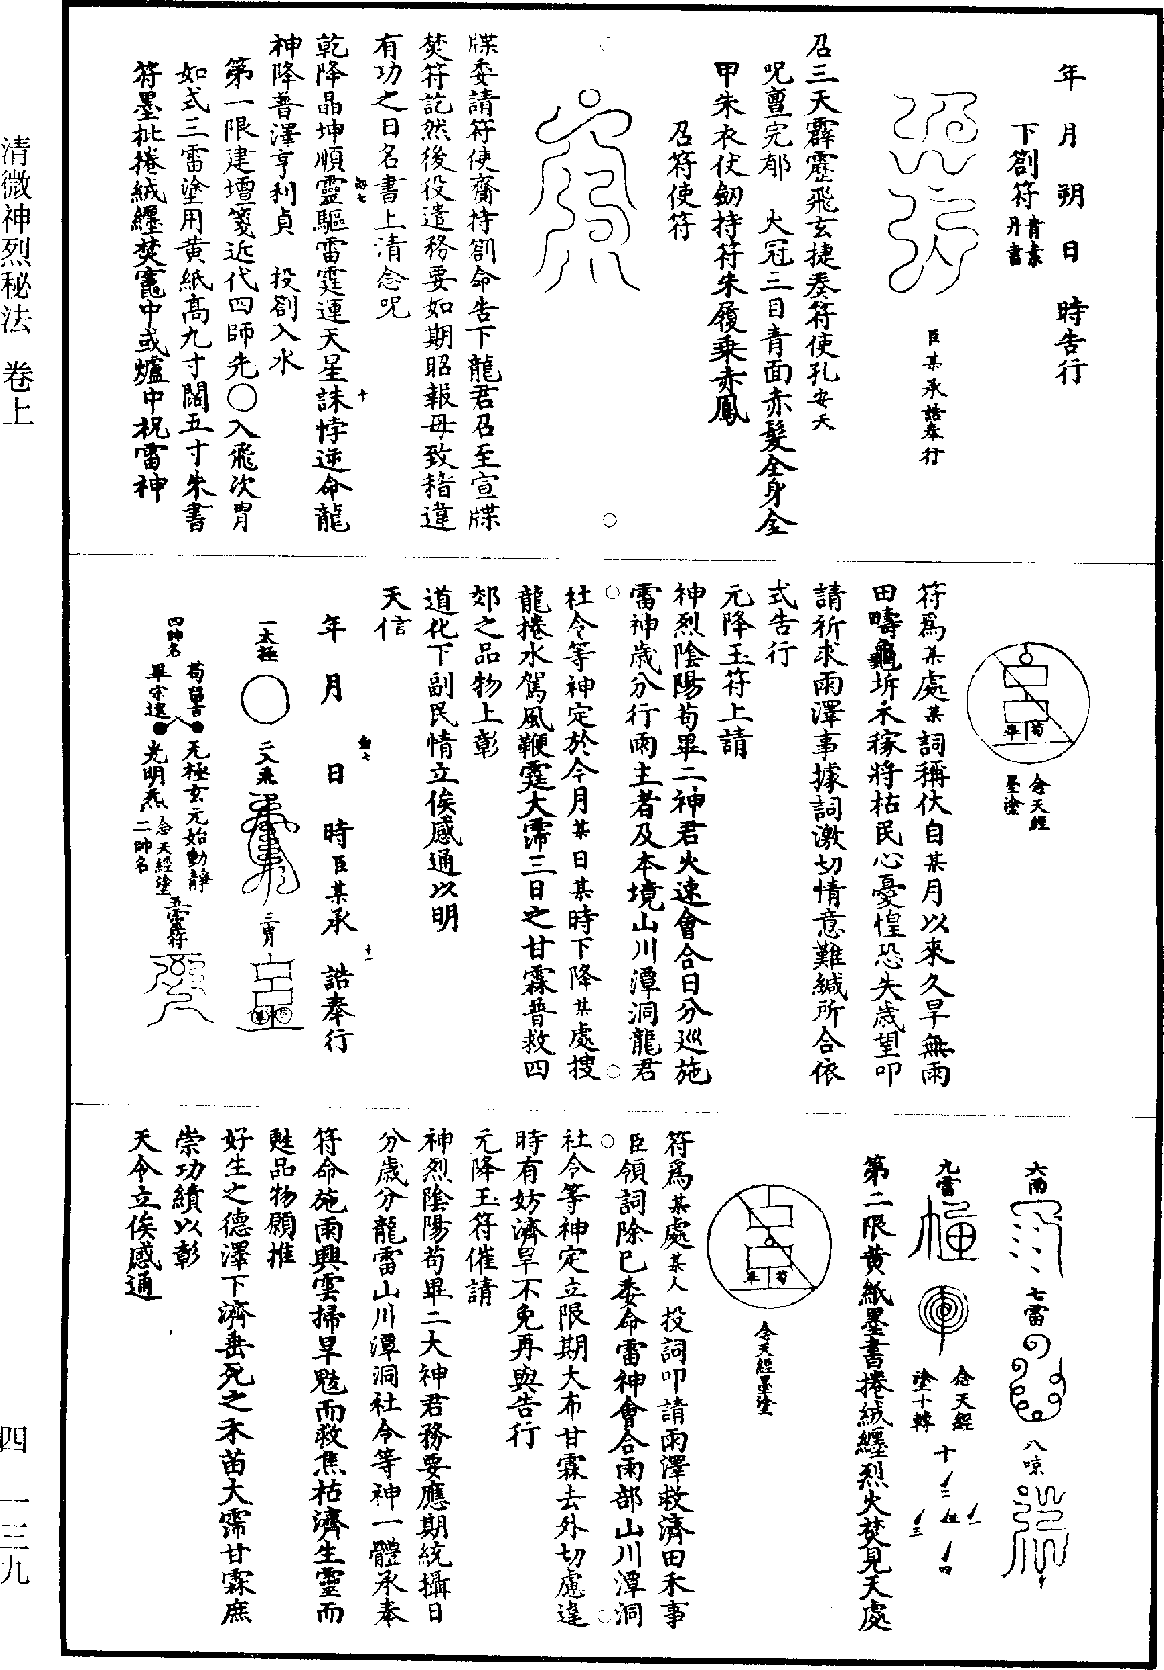 年　月　朔　日　時告行
下劄符青素丹書
臣某承誥奉行
召三天霹靂飛玄捷奏符使孔安天
呪亶完郁　火冠三目青面赤髮全身金
甲朱衣仗劒持符朱履乘赤鳳
召符使符
牒委請符使齎持劄命告下龍君召至宣牒
焚符訖然後役遣務要如期昭報毋致稽違
有功之日名書上清念呪
乾降晶坤順靈驅雷霆運天星誅悖逆命龍
神降普澤亨利貞　投劄入水
第一限建壇箋近代四師先〇入飛次胃
如式三雷塗用黃紙高九寸闊五寸朱書
符墨批捲絨纏焚竈中或爐中祝雷神
念天經
墨塗
符爲某處某詞稱伏自某月以來久旱無雨
田疇龜坼禾稼將枯民心憂惶恐失歲望叩
請祈求雨澤事據詞激切情意難緘所合依
式告行
元降玉符上請
神烈陰陽荀畢二神君火速會合日分巡施
雷神歲分行雨主者及本境山川潭洞龍君
社令等神定於今月某日某時下降某處搜
龍捲水駕風鞭霆大霈三日之甘霖普救四
郊之品物上彰
道化下副民情立俟感通以明
天信
年　月　日　時臣某承　誥奉行
一太極
二入飛
三胃
四帥名
荀留吉
畢宗遠
无極玄元始動靜
光明炁念天經塗
二帥名
五雷符
六雨
七雷
八喨
九雷
念天經
塗十轉
第二限黃紙墨書捲絨纏烈火焚見天處
荀
畢
念天經墨塗
符爲某處某人投詞叩請雨澤救濟田禾事
臣領詞除已委命雷神會合雨部山川潭洞
社令等神定立限期大布甘霖去外切慮違
時有妨濟旱不免再與告行
元降玉符催請
神烈陰陽荀畢二大神君務要應期統攝日
分歲分龍雷山川潭洞社令等神一體承奉
符命施雨興雲掃旱魃而救焦枯濟生靈而
甦品物願推
好生之德澤下濟垂死之禾苗大霈甘霖庶
崇功績以彰
天令立俟感通
清微神烈秘法　卷上
四　一三九